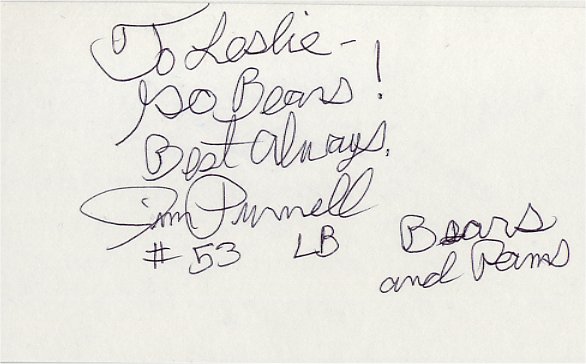 To Leslie -
Go Bears!
Best Always,
Jim Purnell
#53 LB
Bears
and Rams